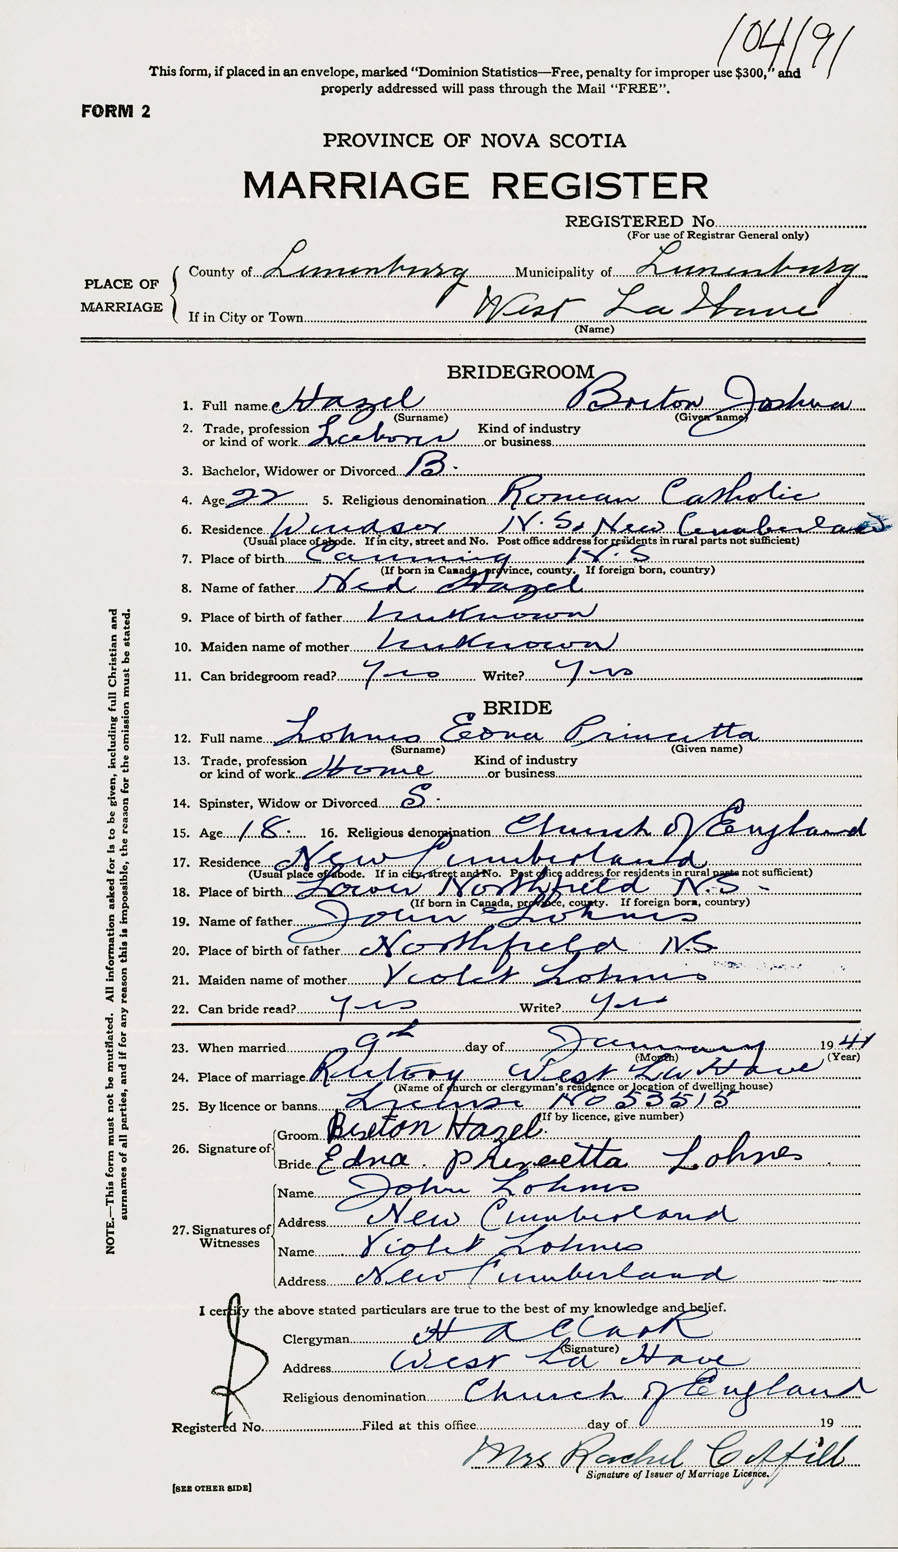 104191
This form, if placed in an envelope, marked "Dominion Statistics—Free, penalty for improper use $300," and
properly addressed will pass through the Mail "FREE".
FORM 2
PROVINCE OF NOVA SCOTIA
MARRIAGE REGISTER
REGISTERED No.
(For use of Registrar General only)
PLACE OF MARRIAGE
County of Lunenburg Municipality of Lunenburg
If in City or Town West La Have
(Name)
BRIDEGROOM
1. Full name Hazel Burton Joshua
(Surname) (Given name)
2. Trade, profession or kind of work Laborer Kind of industry or business
3. Bachelor, Widower or Divorced B.
4. Age 22 5. Religious denomination Roman Catholic
6. Residence Windsor N.S. New Cumberland
(Usual place of abode. If in city, street and No. Post office address for residents in rural parts not sufficient)
7. Place of birth Canning N.S
(If born in Canada, province, county. If foreign born, country)
8. Name of father Ned Hazel
9. Place of birth of father Unknown
10. Maiden name of mother Unknown
11. Can bridegroom read? Yes Write? Yes
BRIDE
12. Full name Lohnes Edna Princetta
(Surname) (Given name)
13. Trade, profession or kind of work Home Kind of industry or business
14. Spinster, Widow or Divorced S.
15. Age 18. 16. Religious denomination Church of England
17. Residence New Cumberland
(Usual place of abode. If in city, street and No. Post office address for residents in rural parts not sufficient)
18. Place of birth Lower Northfield N.S-
(If born in Canada, province, county. If foreign born, country)
19. Name of father John Lohnes
20. Place of birth of father Northfield N.S
21. Maiden name of mother Violet Lohnes
22. Can bride read? Yes Write? Yes
23. When married 9th day of January 1941
(Month) (Year)
24. Place of marriage Rectory West La Have
(Name of church or clergyman's residence or location of dwelling house)
25. By licence or banns License No 53515
(If by licence, give number)
26. Signature of
Groom Burton Hazel.
Bride Edna. Princetta Lohnes.
27. Signatures of Witnesses
Name John Lohnes
Address New Cumberland
Name Violet Lohnes
Address New Cumberland
I certify the above stated particulars are true to the best of my knowledge and belief.
Clergyman H A Clark
(Signature)
Address West La Have
Religious denomination Church of England
Registered No. Filed at this office day of 19
Mrs Rachel
Signature of Issuer of Marriage Licence.
[SEE OTHER SIDE]
NOTE.—This form must not be mutilated. All information asked for is to be given, including full Christian and
surnames of all parties, and if for any reason this is impossible, the reason for the omission must be stated.